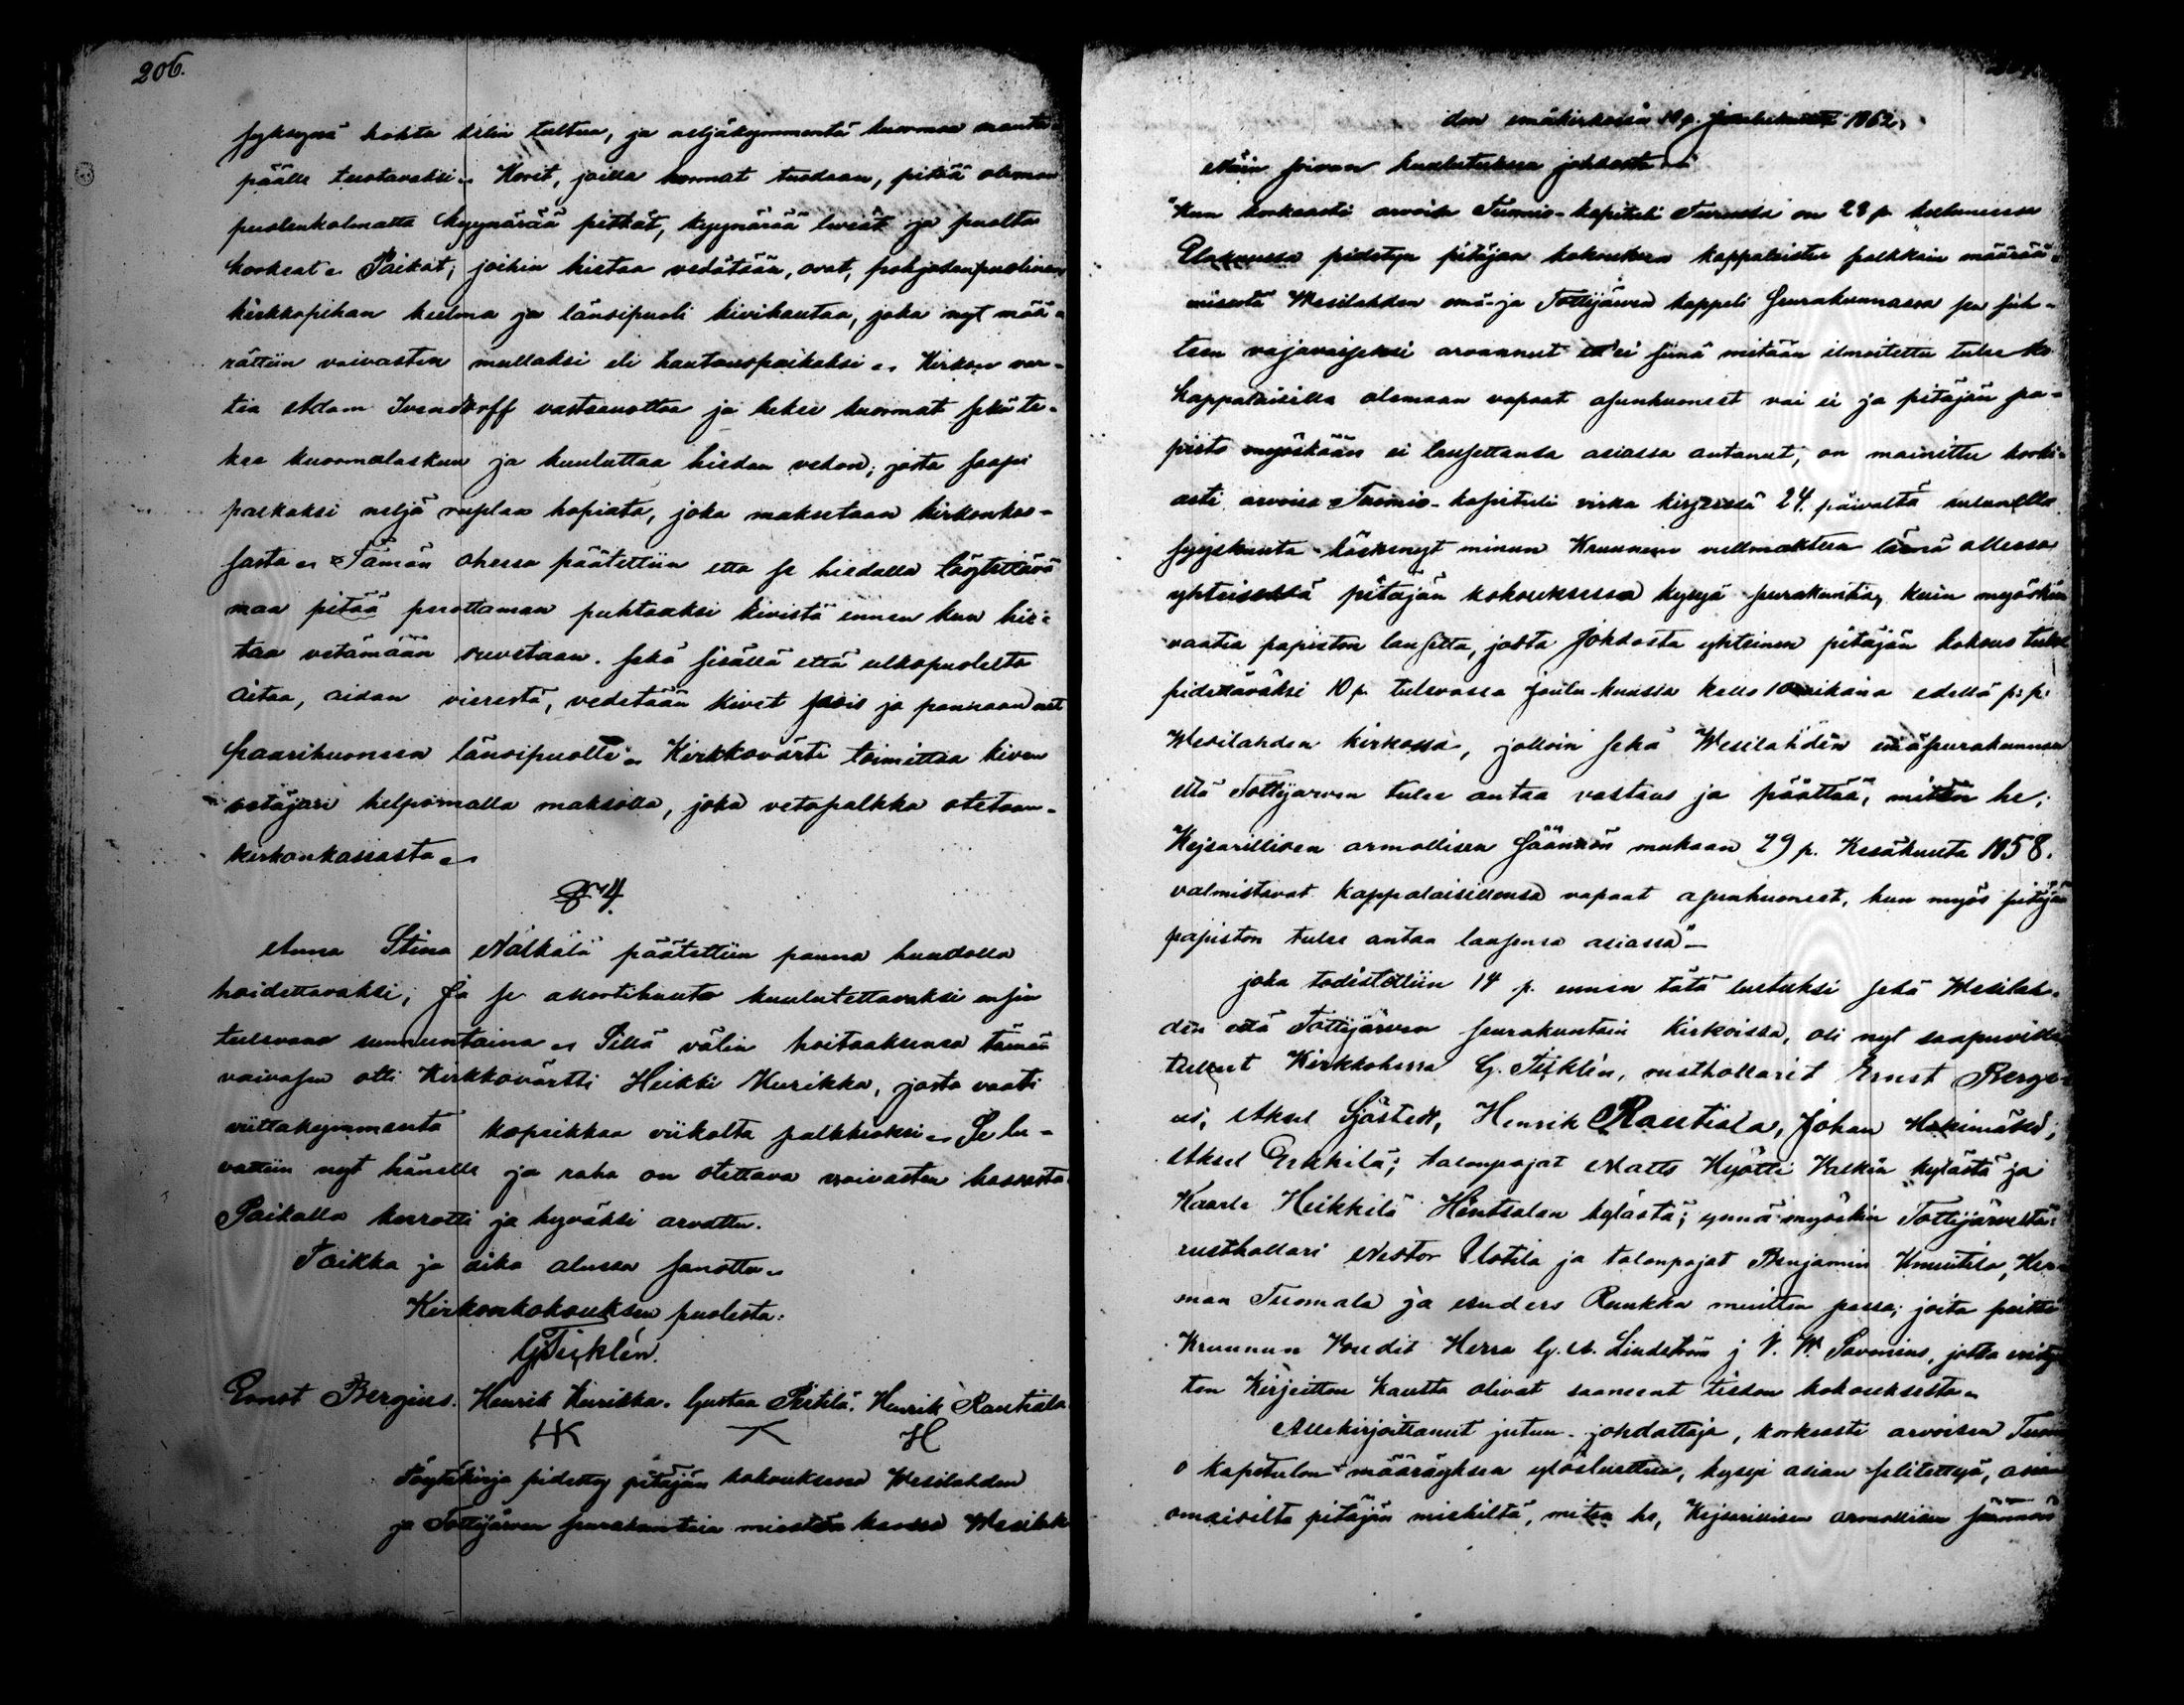 206.
syksynä kohta kelin tultua, ja neljäkymmentä kuormaa manta-
päälle tuotavaksi. Korit, joilla kuormat tuodaan, pitää oleman
puolenkolmatta kyynärää pitkät, kyynärää leveät ja puolta
korkeat. Paikat, joihin hietaa vedätään, ovat, pohjosenpuolinen
kirkkopihan kulma ja länsipuoli kivikautaa, joka nyt mää-
rättiin vaivasten mullaksi eli hautauspaikaksi. Kirkon var-
tia Adam Ivendorff vastaanottaa ja lukee kuormat sekä te-
kee kuormalaskun ja kuuluttaa hiedan vedon; josta saapi
palkaksi neljä ruplaa hopiata, joka maksetaan kirkonkas-
sasta. Tämän ohessa päätettiin että se hiedalla täytettävä
maa pitää perattaman puhtaaksi kivistä ennen kun hie-
taa vetämään ruvetaan. Sekä sisällä että ulkopuolelta
aitaa, aidan vierestä, vedetään kivet pois ja pannaan net
paarihuoneen länsipuolle. Kirkkovärti toimittaa kiven
vetäjän helpommalla maksolla, joka vetopalkka otetaan
kirkonkassasta.
§ 4.
Anna Stina Nälkälä päätettiin panna huudolla
hoidettavaksi; ja se akortihuuto kuulutettavaksi ensin
tulevana sunnuntaina. Sillä välin hoitaaksensa tämän
vaivasen otti Kirkkovärtti Heikki Kurikka, josta vaati
viittakymmentä kopeikkaa viikolta palkkioksi. Se lu-
vattiin nyt hänelle ja raha on otettava vaivasten kassasta.
Paikalla kerrotti ja hyväksi arvattu.
Paikka ja aika alussa sanottu.
Kirkonkokouksen puolesta:
G Ticklén.
Ernst Bergius. Henrik Kurikka. Gustaa Pietilä. Henrik Rautiala
HK H
Pöytäkirja pidetty pitäjän kokouksessa Wesilahden
ja Tottijärven seurakuntain miesten kanssa Wesilah
den emäkirkossa 10 p. joulukuuta 1862.
Näin soivan kuulutuksen johdosta:
"Kun korkeasti arvoisa Tuomio-kapituli Turussa on 28 p. kuluneessa
Elokuussa pidetyn pitäjän kokouksen kappalaisten palkkain määrää-
misestä Wesilahden emä- ja Tottijärven kappeli seurakunnassa sen suh-
teen vajavaiseksi arvannut ett'ei siinä mitään ilmoitettu tulee ko
kappalaisilla oleman vapaat asunhuoneet vai ei ja pitäjän pa-
pisto myöskään ei lausettansa asiassa antanut, on mainittu korki-
asti arvoisa Tuomio-kapituli virka kirjeessä 24. päivältä kuluvalla
syyskuuta käskenyt minun Kruunun vallmaktien läsnä ollessa
yhteisessä pitäjän kokouksessa kysyä seurakuntia, kuin myöskin
vaatia papiston lausetta, josta johdosta yhteinen pitäjän kokous tulee
pidettäväksi 10 p. tulevassa joulu-kuussa kello 10 aikana edellä p:p:
Wesilahden kirkossa, jolloin sekä Wesilahden emäseurakunnan
että Tottijärven tulee antaa vastaus ja päättää, miten he,
Kejsarillisen armollisen säännön mukaan 29 p. Kesäkuuta 1858.
valmistavat kappalaisillensa vapaat asunhuoneet, kun myös pitäjän
papiston tulee antaa lausensa asiassa" —
joka todistettiin 14 p. ennen tätä luetuksi sekä Wesilah-
den että Tottijärven seurakuntain kirkoissa, oli nyt saapuvilla
tulleet Kirkkoherra G. Ticklén, rusthollarit Ernst Bergi-
us, Aksel Sjöstedt, Henrik Rautiala, Johan Hakimäki,
Aksel Erkkilä; talonpojat Matts Hyötti Valkin kylästä ja
Kaarle Heikkilä Hintsalan kylästä; ynnä myöskin Tottijärveltä:
rusthollari Nestor Uotila ja talonpojat Benjamin Knuutila, Her-
man Tuomala ja Anders Ruukka muitten passa; joita paitsi
Kruunun Voudit Herra G. A. Lindström j V. W. Savonius, jotka erity-
ten Kirjeitten kautta olivat saaneet tiedon kokouksesta.
Allekirjoittanut jutun-johdattaja, korkeasti arvoisen Tuomi
o kapitulon määräyksen ylösluettua, kysyi asian selitettyä, asian
omaisilta pitäjän miehiltä, miten he, Kejsarillisen armollisen säännön